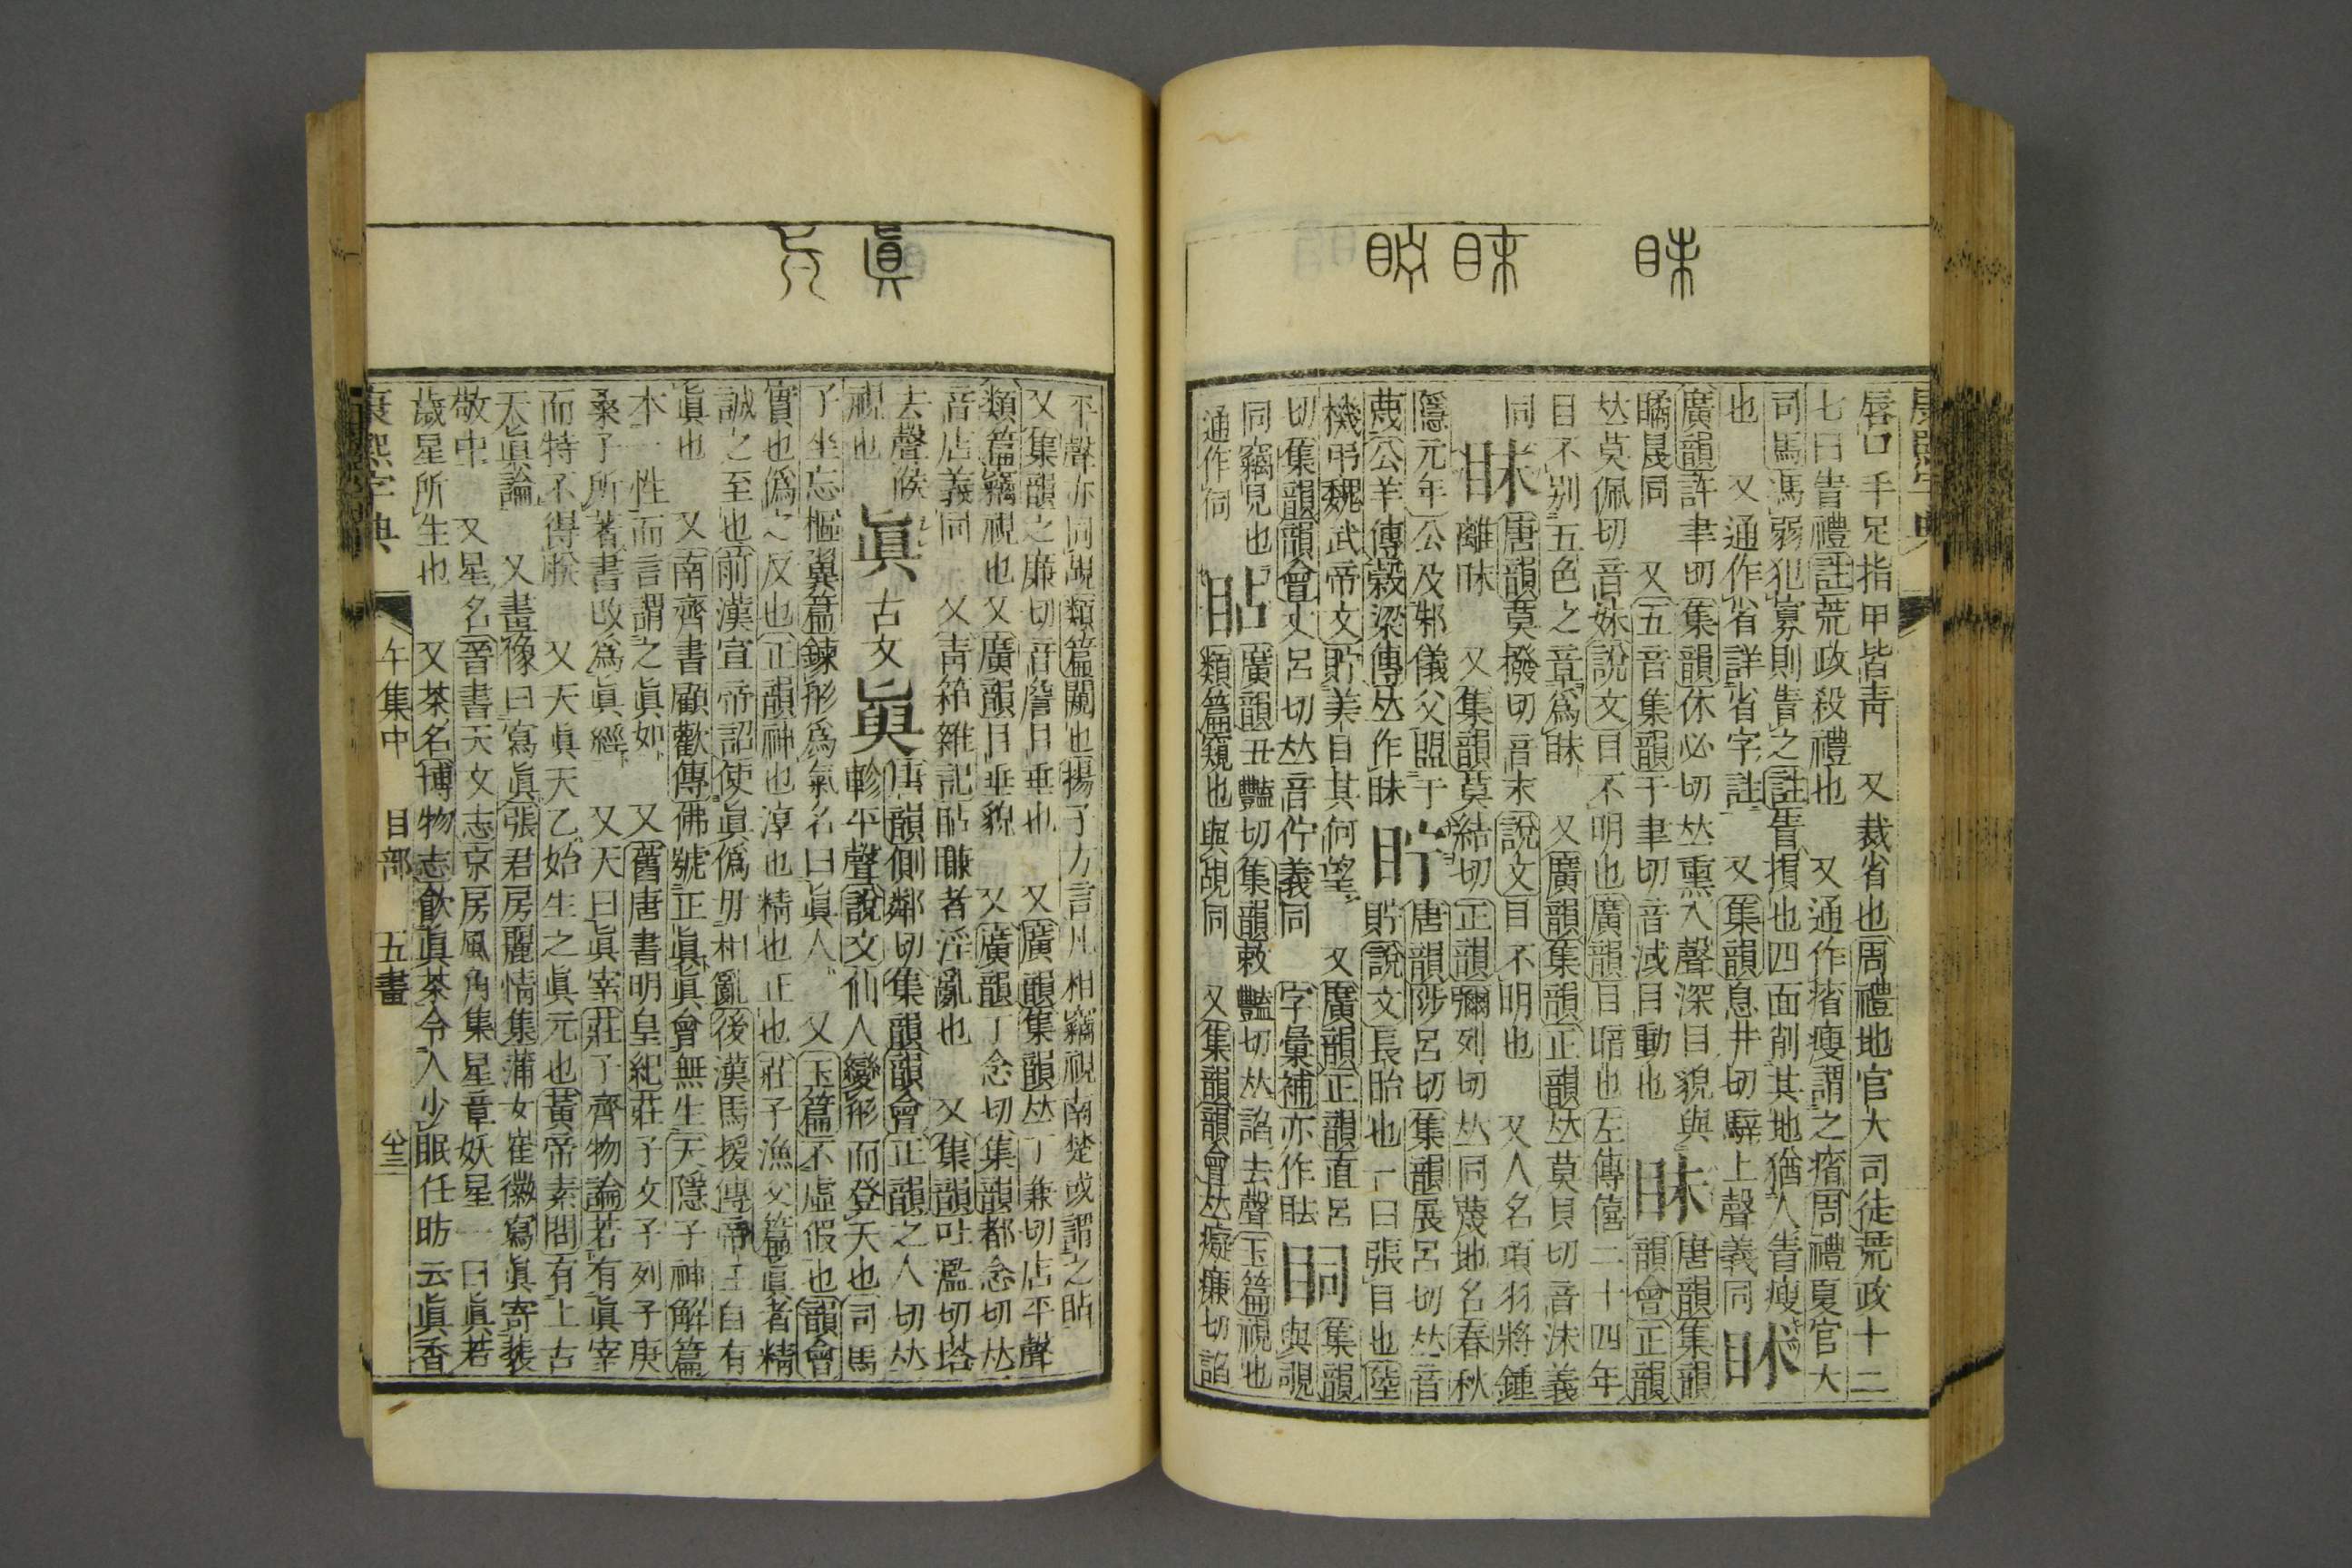 眜 眛 䀼
脣口手足指甲皆靑 又裁省也周禮地官大司徒荒政十二
七曰眚禮註荒政殺禮也 又通作㾪瘦謂之㾪周禮夏官大
司馬馮弱犯寡則眚之註眚損也四面削其地猶人眚瘦
也 又通作省詳省字註 又集韻息井切騂上聲義同
廣韻許聿切集韻休必切𠀤熏入聲深目貌與
瞲㫧同 又五音集韻于聿切音域目動也 眛 唐韻集韻韻會正韻
𠀤莫佩切音妹說文目不明也廣韻目暗也左傳僖二十四年
目不別五色之章爲眛 又廣韻集韻正韻𠀤莫貝切音沬義
同 眜 唐韻莫撥切音末說文目不明也 又人名項羽將鍾
離眜 又集韻莫結切正韻彌列切𠀤同蔑地名春秋
隱元年公及邾儀父盟于
蔑公羊傳穀梁傳𠀤作眜 眝 唐韻陟呂切集韻展呂切𠀤音
貯說文長眙也一曰張目也陸
機弔魏武帝文眝美目其何望 又廣韻正韻直呂切集韻
韻會丈呂切𠀤音佇義同 字彙補亦作䀼 眮 與覗
同竊見也 通作伺 䀡 廣韻丑豔切集韻敕豔切𠀤諂去聲玉篇視也
類篇窺也與覘同 又集韻韻會𠀤癡廉切諂
眞
平聲亦同覘類篇闚也揚子方言凡相竊視南楚或謂之䀡
又集韻之廉切音詹目垂也 又廣韻集韻𠀤丁兼切店平聲
類篇竊視也又廣韻目垂貌 又廣韻丁念切集韻都念切𠀤
音店義同 又靑箱雜記䀡䁠者淫亂也 又集韻吐濫切塔
去聲候
視也 眞 古文𥄗 唐韻側鄰切集韻韻會正韻之人切𠀤
軫平聲說文仙人變形而登天也司馬
子坐忘樞翼篇鍊形爲氣名曰眞人 又玉篇不虛假也韻會
實也僞之反也正韻神也淳也精也正也莊子漁父篇眞者精
誠之至也前漢宣帝詔使眞僞毋相亂後漢馬援傳帝王自有
眞也 又南齊書顧歡傳佛號正眞眞會無生天隱子神解篇
本一性而言謂之眞如 又舊唐書明皇紀莊子文子列子庚
桑子所著書改爲眞經 又天曰眞宰莊子齊物論若有眞宰
而特不得朕 又天眞天乙始生之眞元也黃帝素問有上古
天眞論 又畫像曰寫眞張君房麗情集蒲女崔徽寫眞寄裴
敬中 又星名晉書天文志京房風角集星章妖星一曰眞若
歲星所生也 又茶名博物志飮眞茶令人少眠任昉云眞香
康熙字典 午集中 目部 五畫